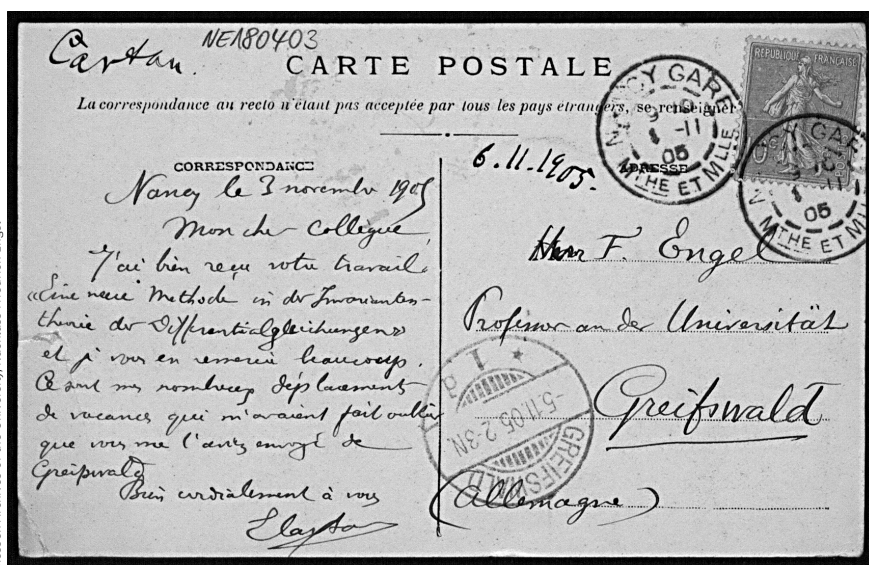 Cartan.
NE180403
CARTE POSTALE
La correspondance au recto n'étant pas acceptée par tous les pays étrangers, se renseigner
CORRESPONDANCE
Nancy le 3 novembre 1905
Mon cher Collègue,
J'ai bien reçu votre travail
«Eine neue Methode in der Invarianten-
theorie der Differentialgleichungen»
et je vous en remercie beaucoup.
Ce sont mes nombreux déplacements
de vacances qui m'avaient fait oublier
que vous me l'aviez envoyé de
Greifswald
Bien cordialement à vous
E Cartan
6.11.1905.
ADRESSE
Herr F. Engel
Professor an der Universität
Greifswald
(Allemagne)
REPUBLIQUE FRANÇAISE
NANCY GARE
-11
05
MTHE ET MLLE
NANCY GARE
11
05
MTHE ET MLLE
GREIFSWALD
-5.11.05.2-3N.